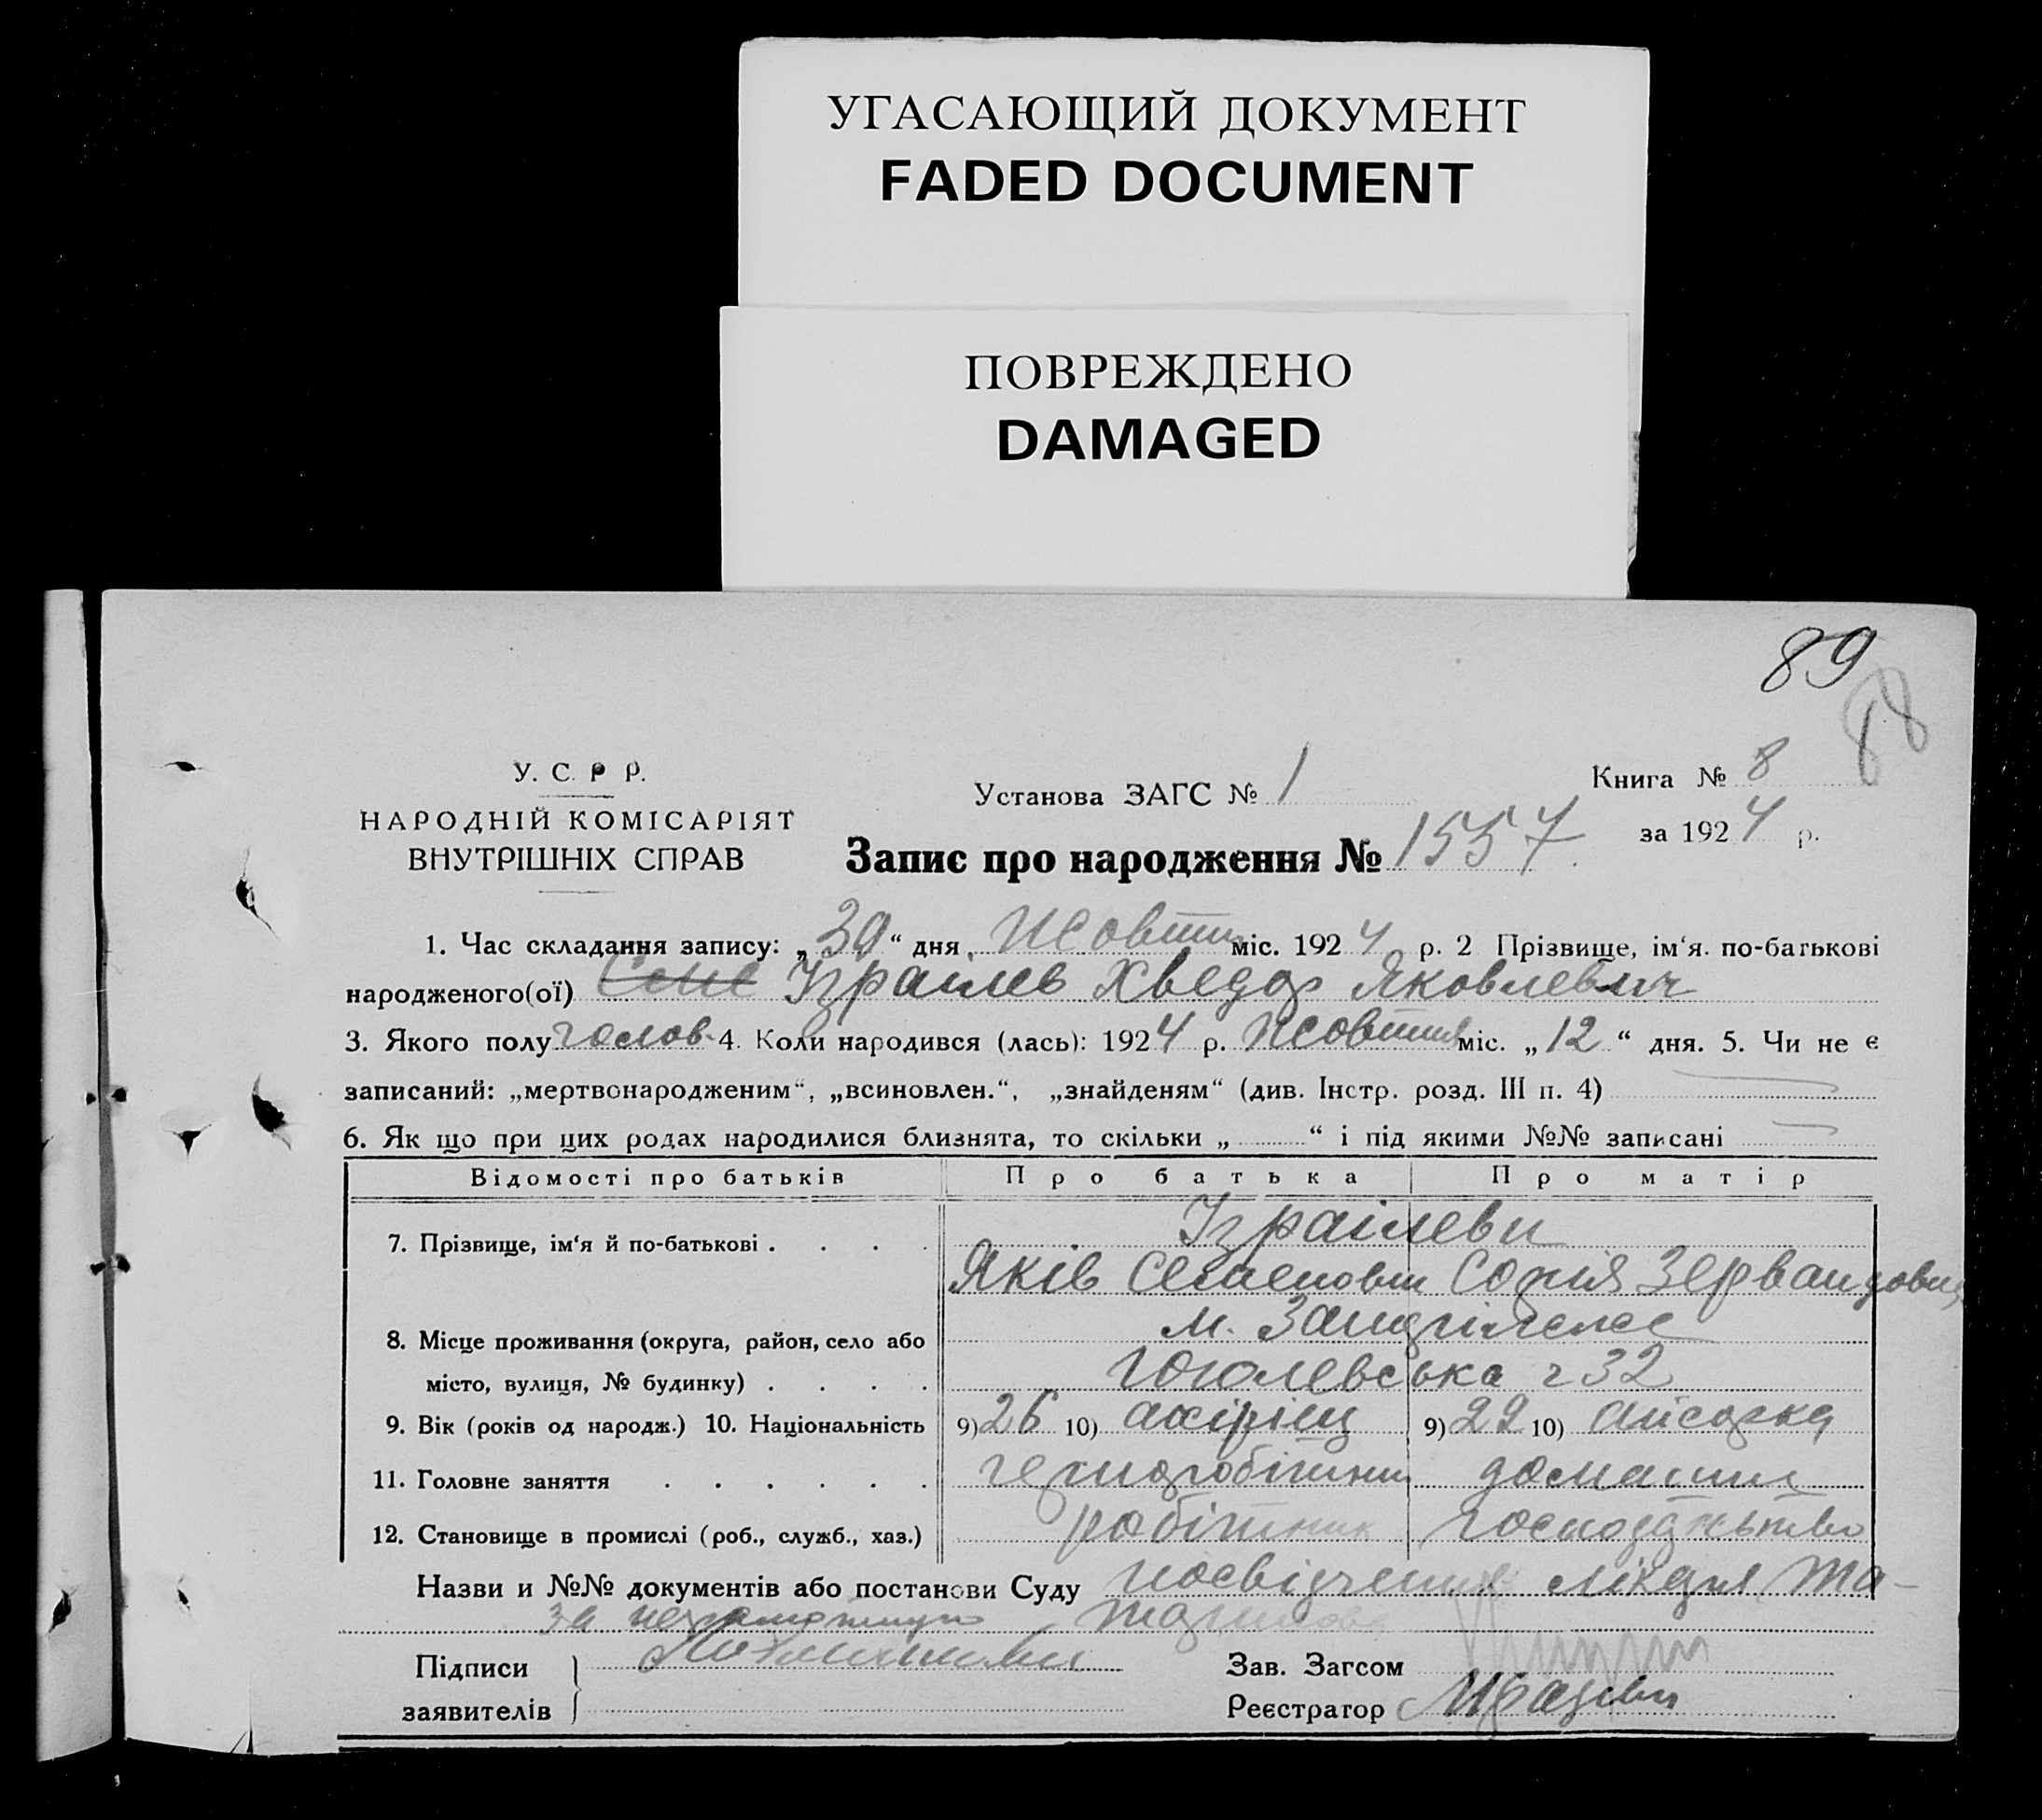 УГАСАЮЩИЙ ДОКУМЕНТ
FADED DOCUMENT
ПОВРЕЖДЕНО
DAMAGED
89
88
У. С. Р Р.
НАРОДНІЙ КОМІСАРІЯТ
ВНУТРІШНІХ СПРАВ
Установа ЗАГС № 1
Книга № 8
за 1924 р.
Запис про народження № 1557
1. Час складання запису: „30“ дня Жовтн міс. 1924 р. 2 Прізвище, ім‘я. по-батькові
народженого(ої) Ізраілев Хведор Яковлевич
3. Якого полу голов. 4. Коли народився (лась): 1924 р. Жовтня міс. „12“ дня. 5. Чи не є
записаний: „мертвонародженим“, „всиновлен.“, „знайденям“ (див. Інстр. розд. III п. 4)
6. Як що при цих родах народилися близнята, то скільки „ “ і під якими №№ записані
Відомості про батьків Про батька Про матір
7. Прізвище, ім‘я й по-батькові . . . . Ізраілеви
Яків Семенович Софія
8. Місце проживання (округа, район, село або м.
місто, вулиця, № будинку) . . . . Гоголевська ч 32
9. Вік (років од народж.) 10. Національність 9) 26 10) 9) 22 10)
11. Головне заняття . . . . . . домашнє
12. Становище в промислі (роб., служб., хаз.) робітник господарьство
Назви и №№ документів або постанови Суду посвідчення лікаря
за неграмотную
Підписи
заявителів
Зав. Загсом
Реєстратор